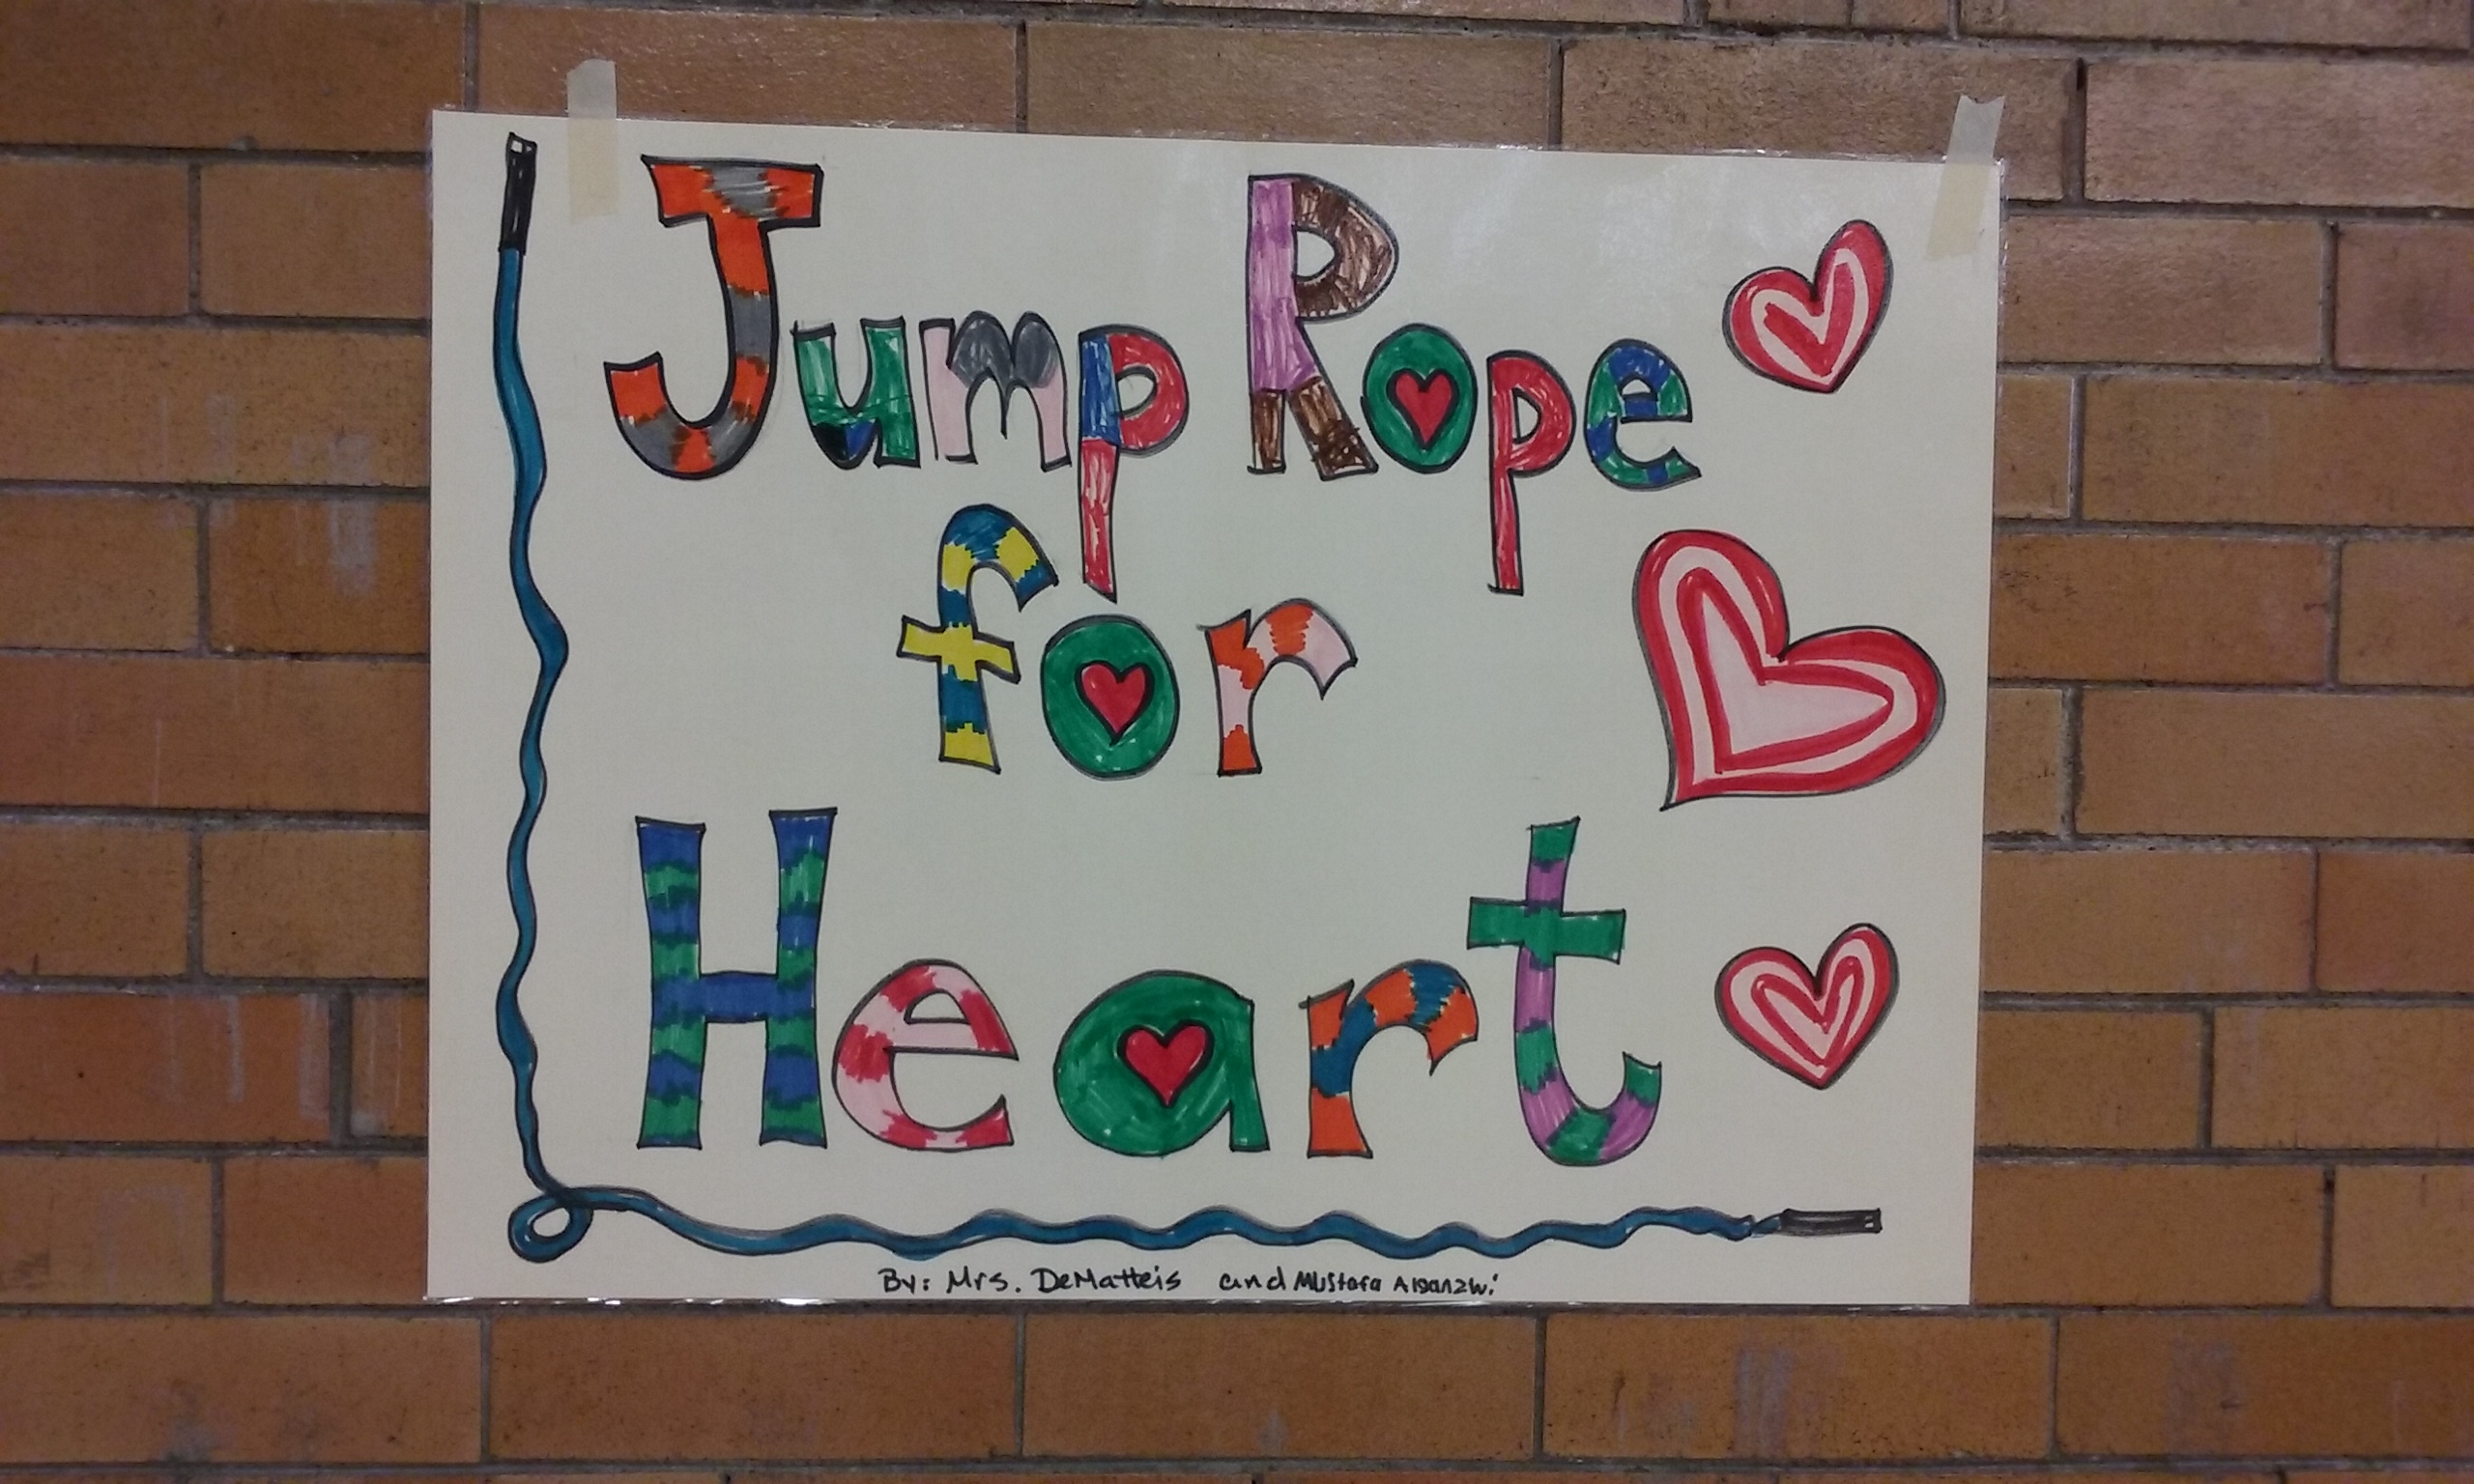 Jump Rope
for
Heart
By: Mrs. DeMatteis and Mustafa